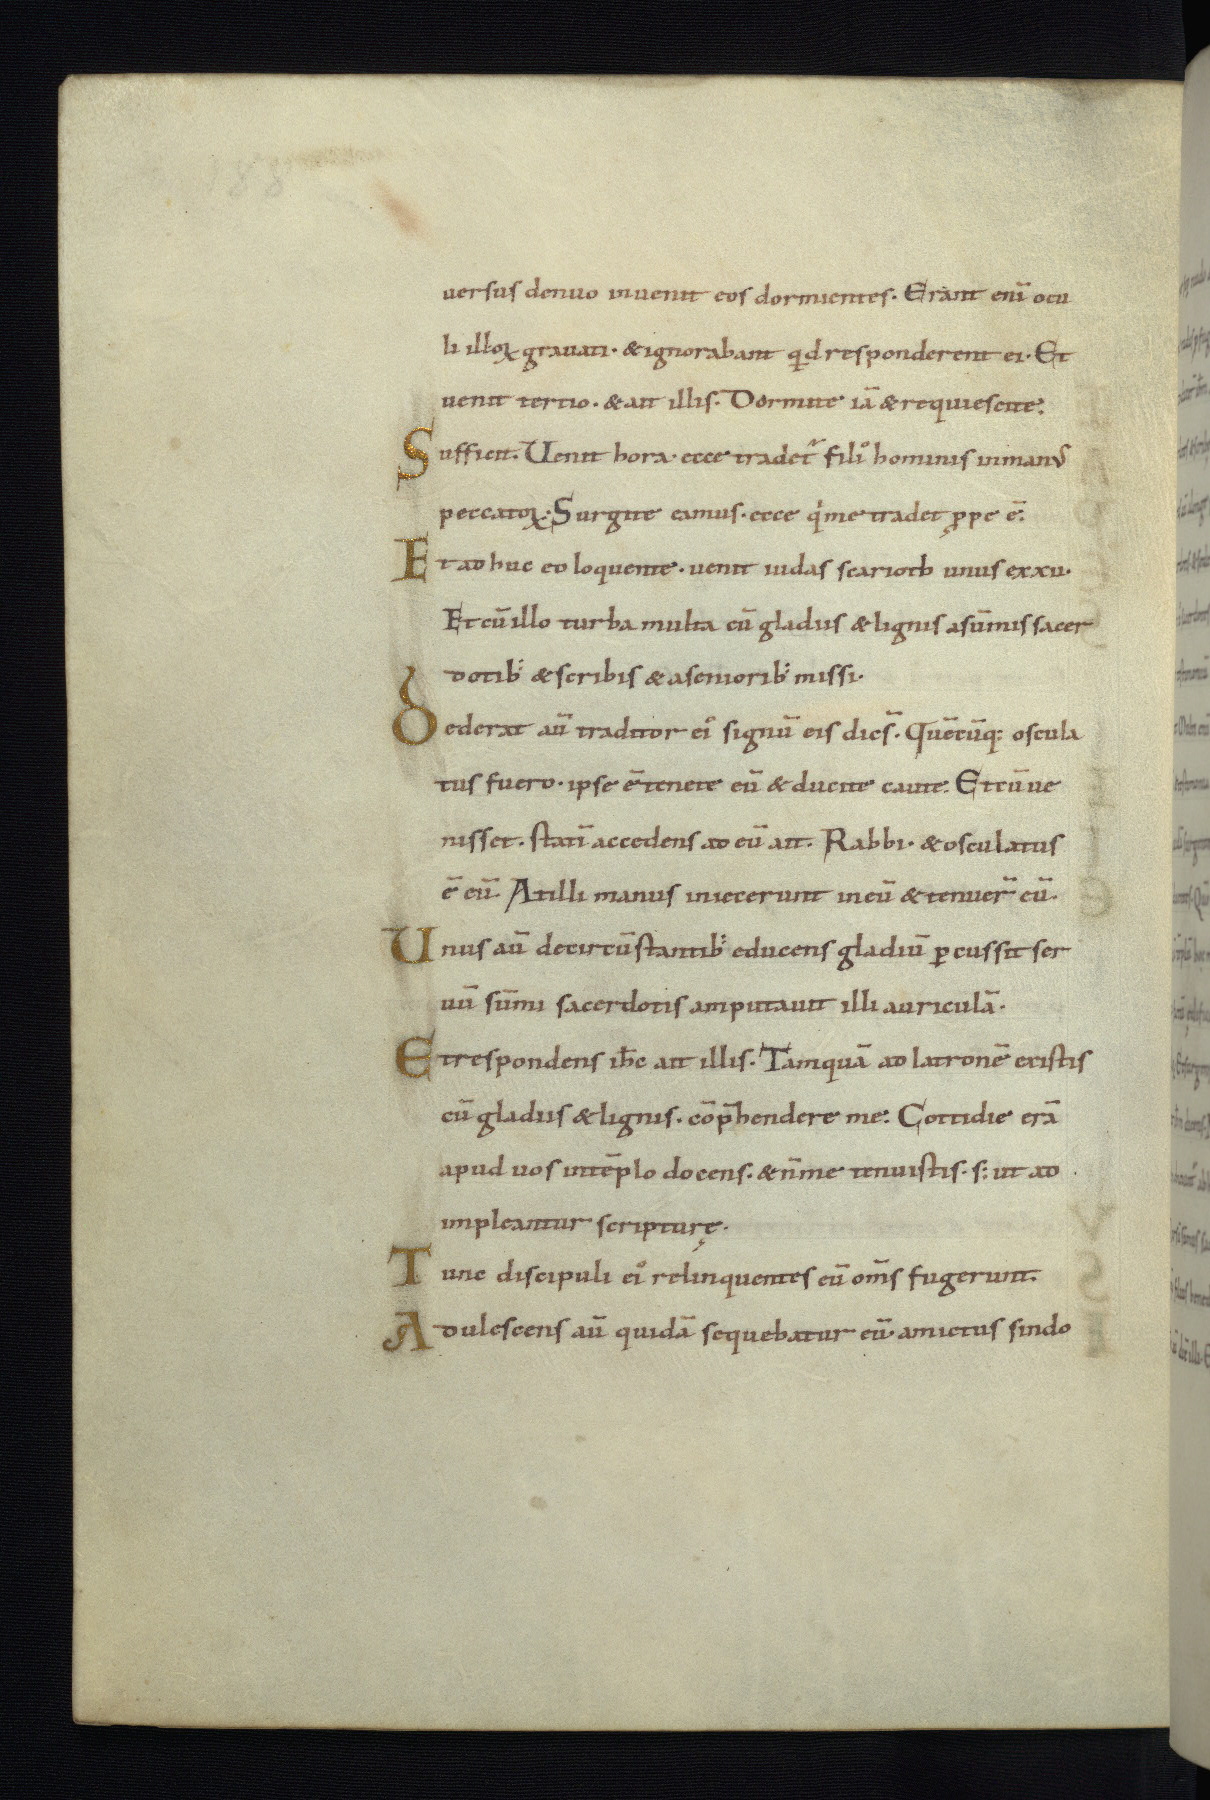 uersus denuo inuenit eos dormientes. Erant enī ocu
li illoꝝ grauati. & ignorabant qͥd responderent ei. Et
uenit tertio. & ait illis. Dormite iā & requiescite.
Sufficit. Uenit hora. ecce tradet᷑ filiꝰ hominis in manꝰ
peccatoꝝ. Surgite eamus. ecce qͥ me tradet ꝓpe ē.
Et adhuc eo loquente. uenit iudas scarioth unus ex xii.
Et cū illo turba multa cū gladiis & lignis a sūmis sacer
dotib; & scribis & a seniorib; missi.
Dederat aū traditor eiꝰ signū eis dicēs. Quēcūq; oscula
tus fuero. ipse ē tenete eū & ducite caute. Et cū ue
nisset. statī accedens ad eū ait. Rabbi. & osculatus
ē eū. At illi manus iniecerunt in eū & tenuer̄ eū.
Unus aū de circūstantib; educens gladiū ꝑcussit ser
uū sūmi sacerdotis amputauit illi auriculā.
Et respondens ih̄c ait illis. Tamquā ad latronē existis
cū gladiis & lignis. cōp̄hendere me. Cottidie erā
apud uos in tēplo docens. & n̄ me tenuistis. s; ut ad
impleantur scripturę.
Tunc discipuli eiꝰ relinquentes eū om̄s fugerunt.
Adulescens aū quidā sequebatur eū. amictus sindo